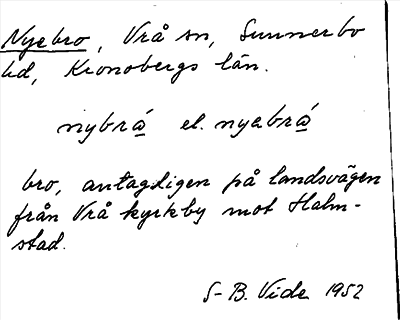 Nyebro, Vrå sn, Sunnerbo
hd, Kronobergs län.
nybrá̲ el. nyabrá̲
bro, antagligen på landsvägen
från Vrå kyrkby mot Halm-
stad.
S-B. Vide 1952